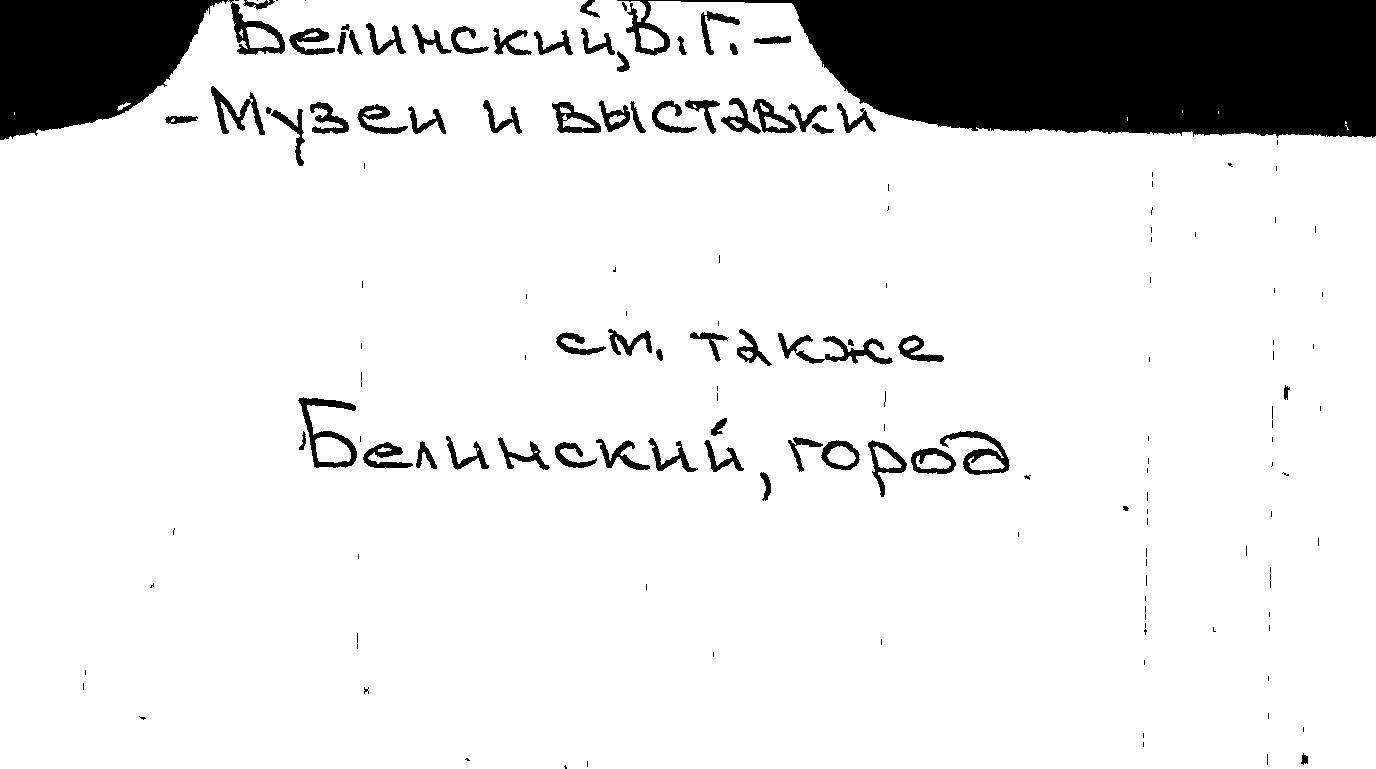 Белинский, В. Г. –
– Музеи и выставки
см. также
Белинский, город